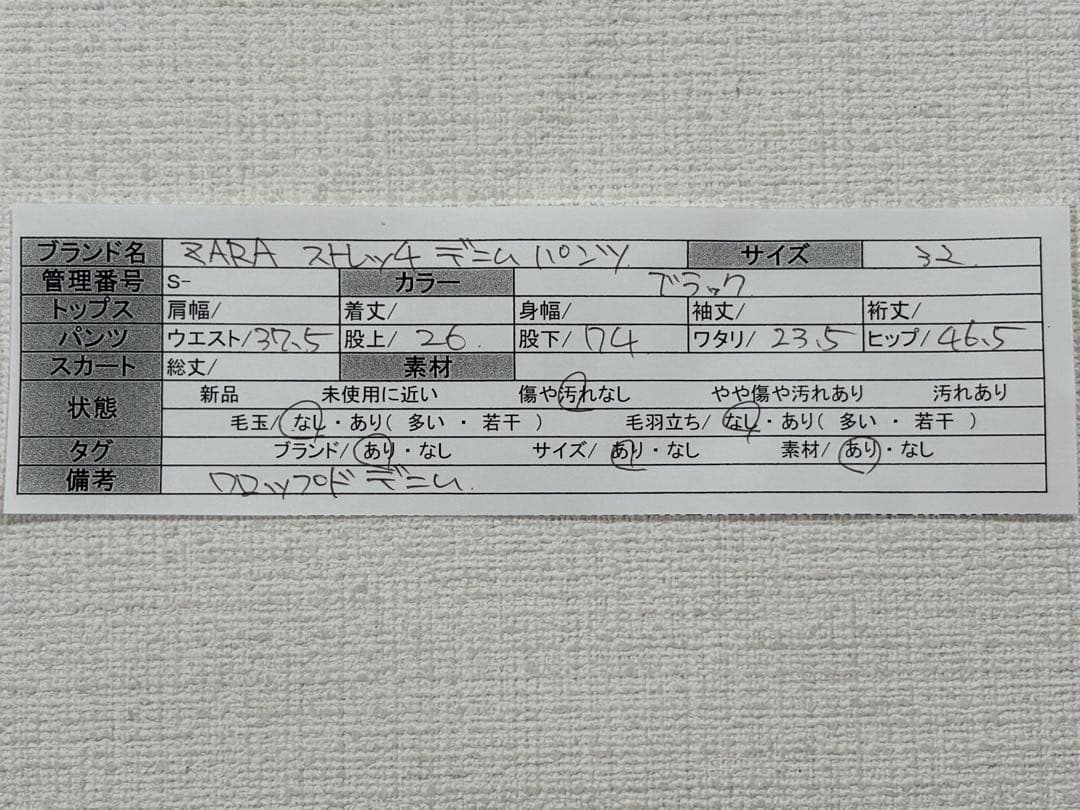 ブランド名 ZARA ストレッチ デニム パンツ サイズ 32
管理番号 S- カラー ブラック
トップス 肩幅/ 着丈/ 身幅/ 袖丈/ 裄丈/
パンツ ウエスト/37.5 股上/ 26 股下/ 74 ワタリ/ 23.5 ヒップ/ 46.5
スカート 総丈/ 素材
状態 新品 未使用に近い 傷や汚れなし やや傷や汚れあり 汚れあり
毛玉/ なし・あり( 多い ・ 若干 ) 毛羽立ち/ なし・あり( 多い ・ 若干 )
タグ ブランド/ あり・なし サイズ/ あり・なし 素材/ あり・なし
備考 クロップド デニム